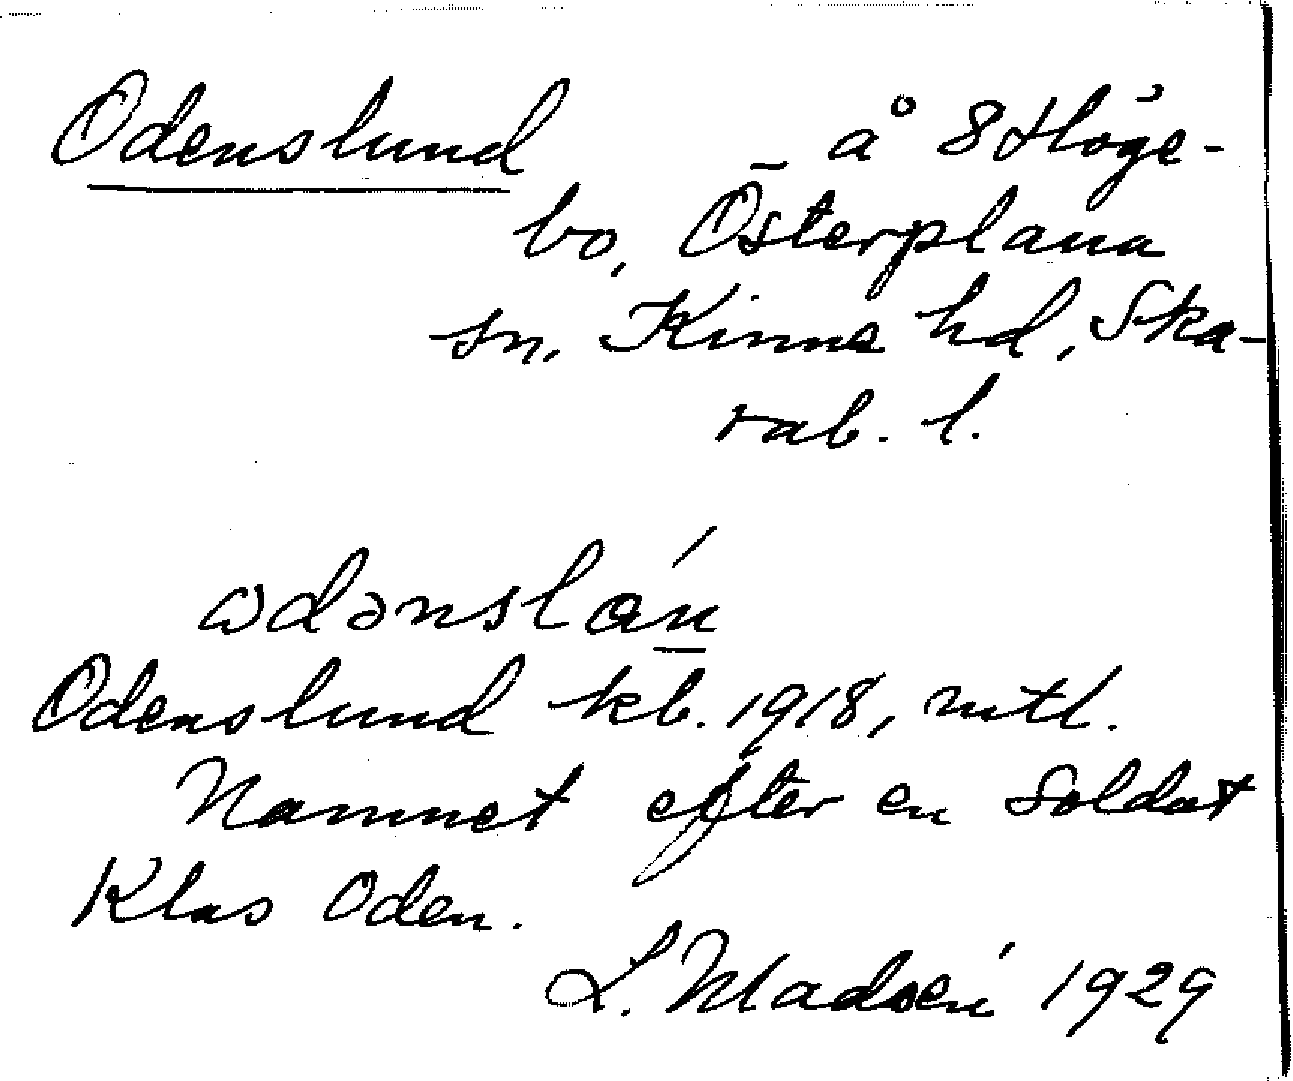 Odenslund å 8 Höge-
bo, Österplana
sn, Kinne hd, Ska-
rab. l.
ωdənslán
Odenslund kb. 1918, mtl.
Namnet efter en soldat
Klas Oden.
L. Madsén 1929